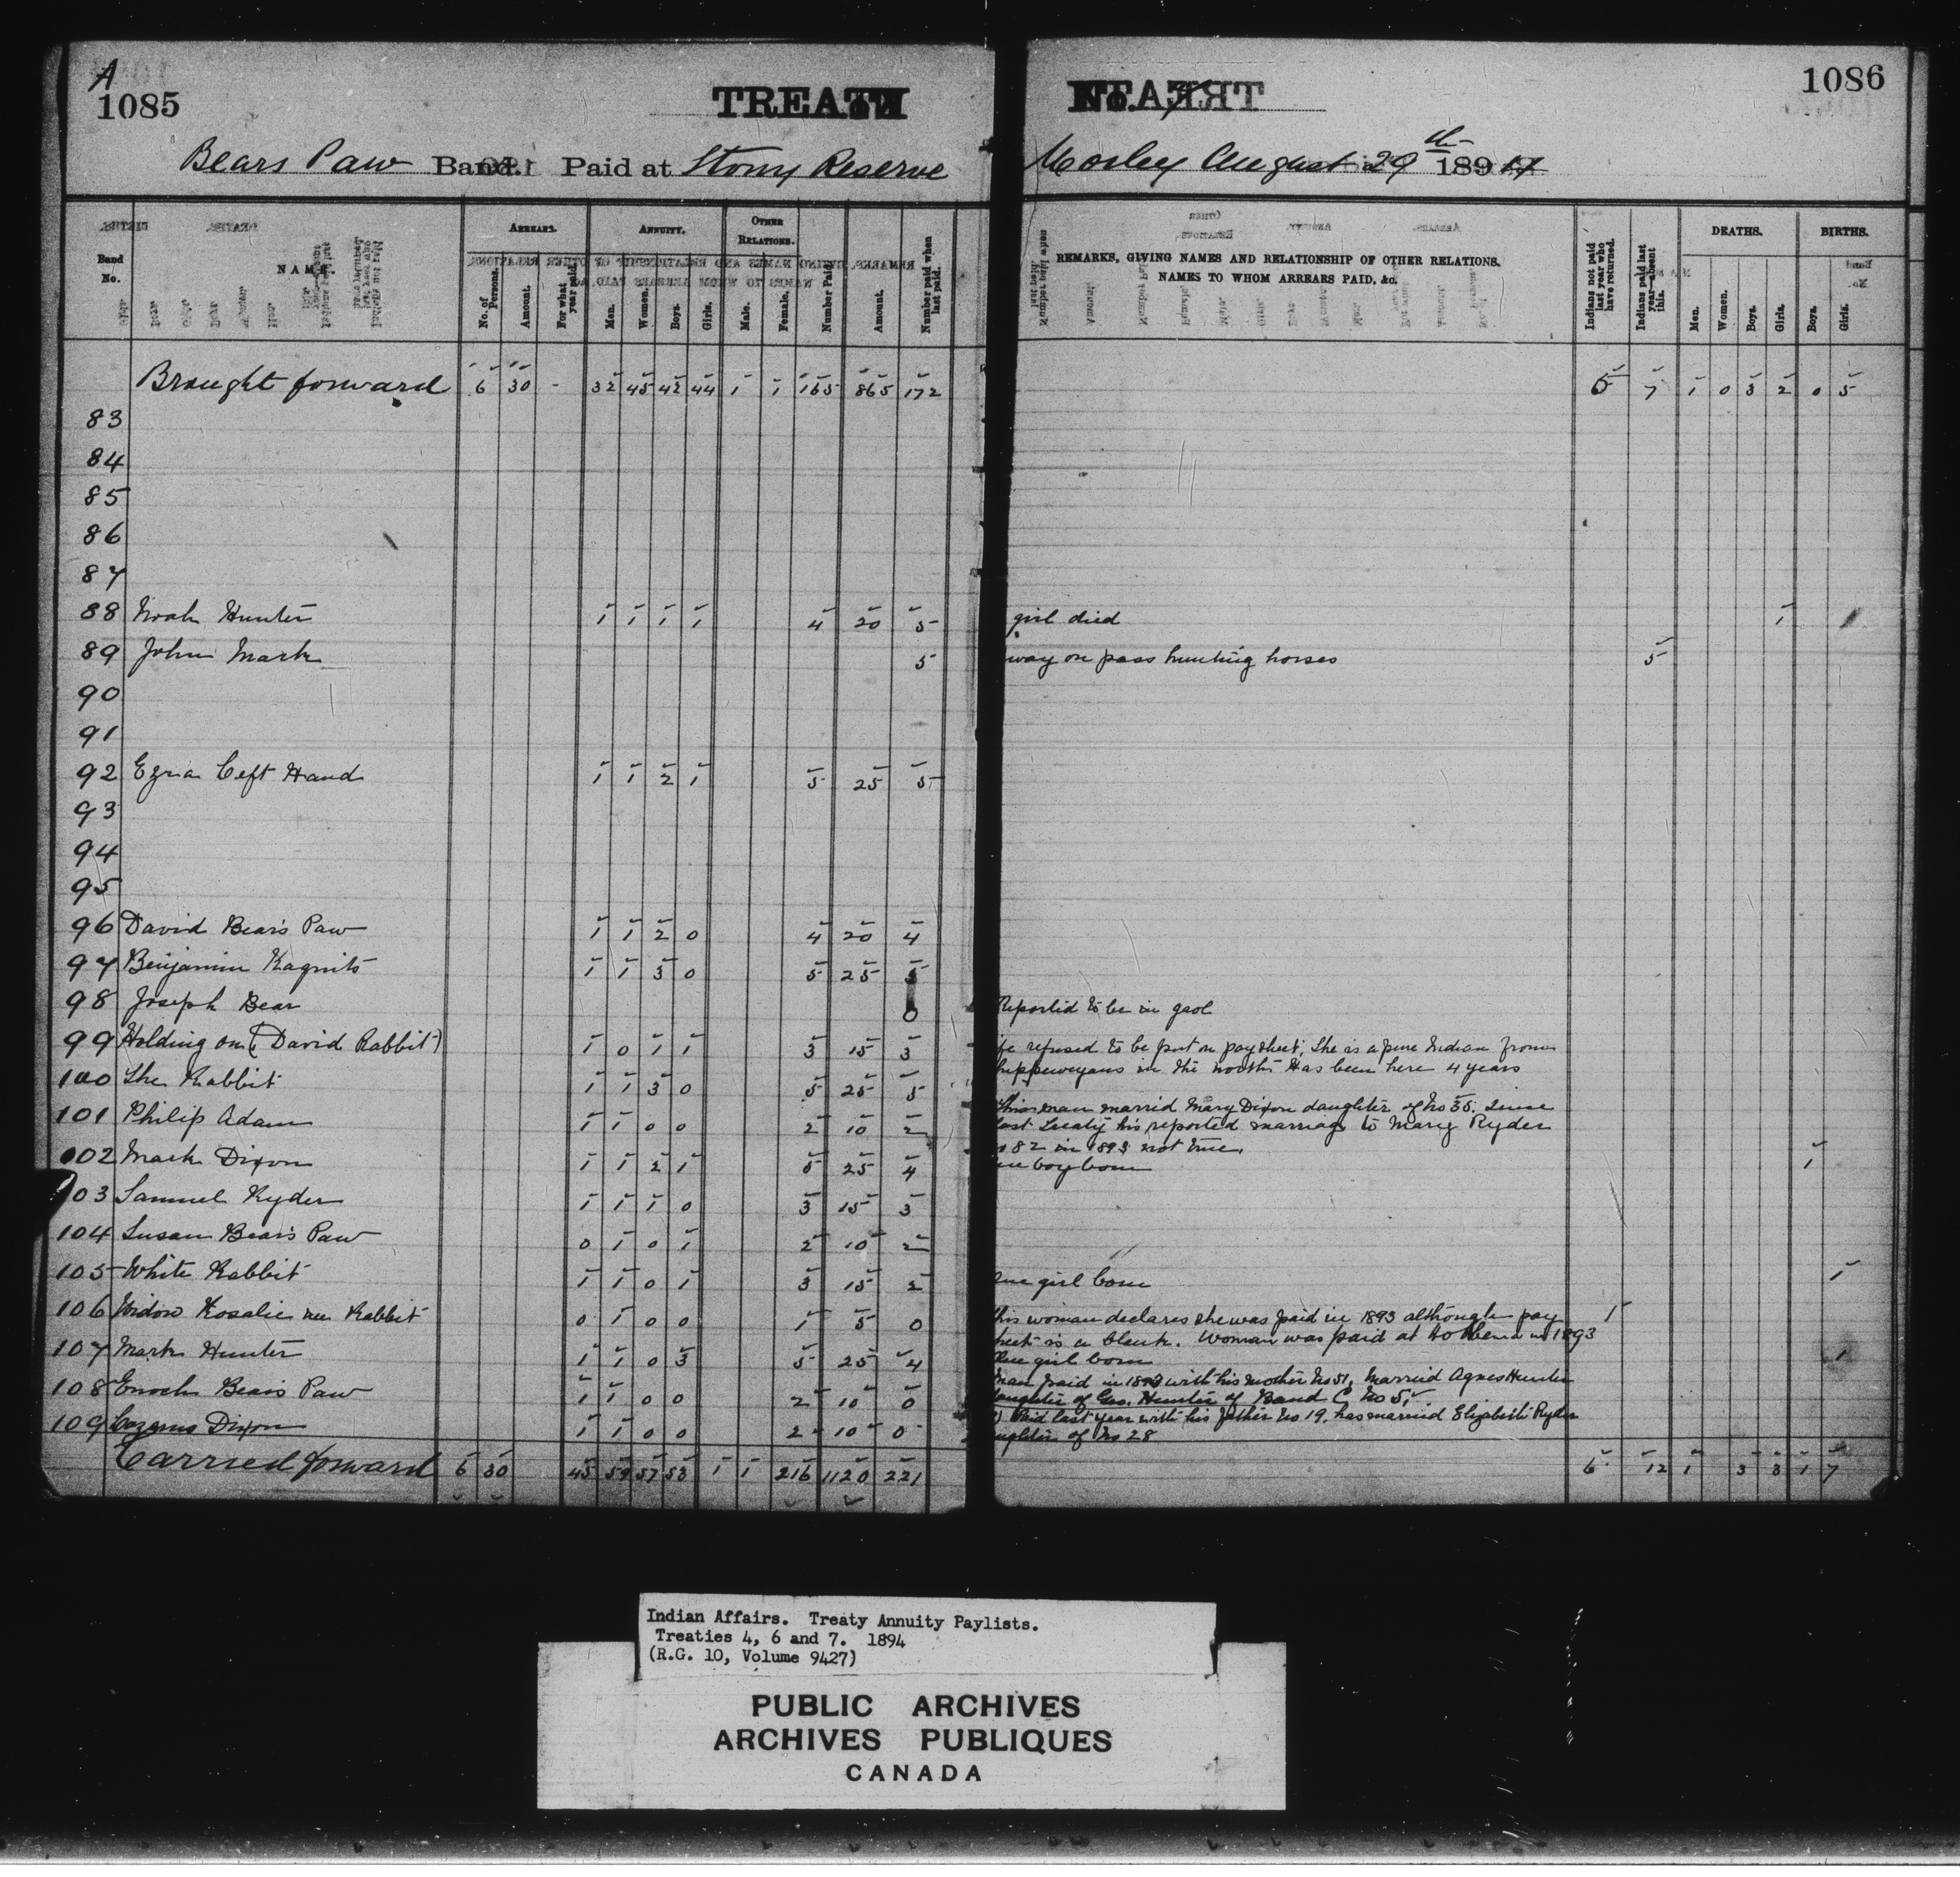 A
1085
TREATY
Bears Paw Band. Paid at Stony Reserve
Band No.
NAME.
ARREARS.
No. of Persons.
Amount.
For what year paid.
ANNUITY.
Men.
Women.
Boys.
Girls.
OTHER RELATIONS.
Male.
Female.
Number Paid.
Amount.
Number paid when last paid.
Brought forward 6 30 - 32 45 42 44 1 1 165 865 172
83
84
85
86
87
88 Noah Hunter 1 1 1 1 4 20 5
89 John Mark 5
90
91
92 Ezra Left Hand 1 1 2 1 5 25 5
93
94
95
96 David Bear's Paw 1 1 2 0 4 20 4
97 Benjamin 1 1 3 0 5 25 5
98 Joseph Bear 0
99 Holding on (David Rabbit) 1 0 1 1 3 15 3
100 The Rabbit 1 1 3 0 5 25 5
101 Philip Adam 1 1 0 0 2 10 2
102 Mark Dixon 1 1 2 1 5 25 4
103 Samuel Ryder 1 1 1 0 3 15 3
104 Susan Bear's Paw 0 1 0 1 2 10 2
105 White Rabbit 1 1 0 1 3 15 2
106 Widow Rosalie nee Rabbit 0 1 0 0 1 5 0
107 Mark Hunter 1 1 0 3 5 25 4
108 Enoch Bears Paw 1 1 0 0 2 10 0
109 Dixon 1 1 0 0 2 10 0
Carried forward 6 30 45 59 57 53 1 1 216 1120 221
1086
No. 7
Morley August 29th 1894
REMARKS, GIVING NAMES AND RELATIONSHIP OF OTHER RELATIONS.
NAMES TO WHOM ARREARS PAID, &c.
Indians not paid last year who have returned.
Indians paid last year—absent this.
DEATHS.
Men.
Women.
Boys.
Girls.
BIRTHS.
Boys.
Girls.
5 7 1 0 3 2 0 5
girl died 1
way on pass hunting horses 5
Reported to be in gaol
fe refused to be put on paysheet. She is a pure Indian from
hippeweyans in the north Has been here 4 years
This man married Mary Dixon daughter of No 35. Since
last Treaty his reported marriage to Mary Ryder
82 in 1893 not true.
ne boy born 1
one girl born 1
This woman declares she was paid in 1893 although pay 1
heet is a blank. Woman was paid at in 1893
One girl born 1
man paid in 1893 with his mother No 51, Married Agnes Hunter
daughter of Geo. Hunter of Band C No 5.
Paid last year with his father No 19, has married Elizabeth Ryder
ughter of No 28
6 12 1 3 3 1 7
Indian Affairs. Treaty Annuity Paylists.
Treaties 4, 6 and 7. 1894
(R.G. 10, Volume 9427)
PUBLIC ARCHIVES
ARCHIVES PUBLIQUES
CANADA